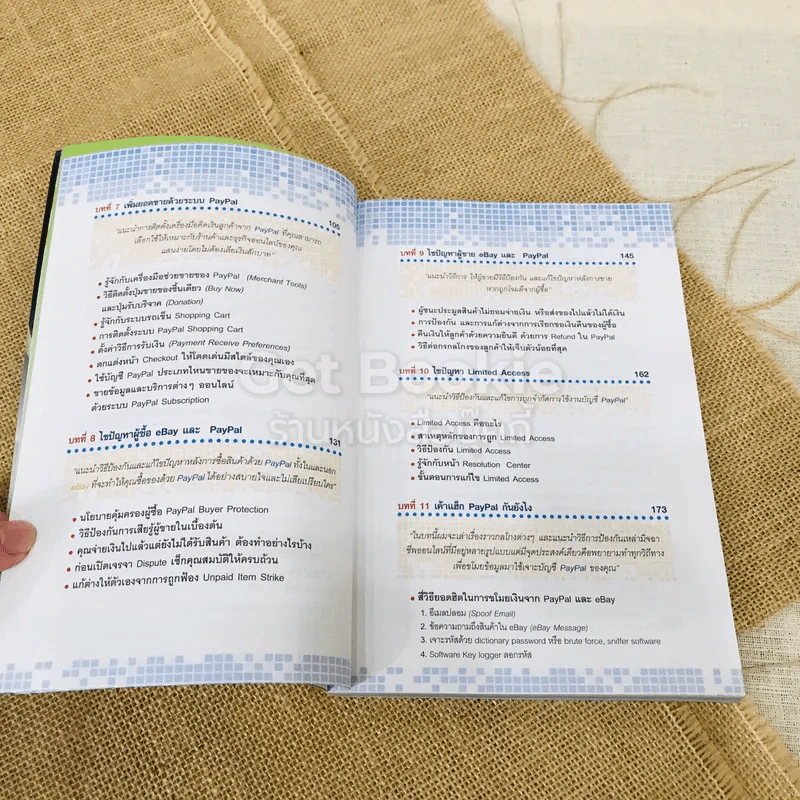 บทที่ 7 เพิ่มยอดขายด้วยระบบ PayPal
105
"แนะนำการติดตั้งเครื่องมือคิดเงินลูกค้าจาก PayPal ที่คุณสามารถ
เลือกใช้ให้เหมาะกับร้านค้าและธุรกิจออนไลน์ของคุณ
แสนง่ายดายโดยไม่ต้องเสียเงินสักบาท"
• รู้จักกับเครื่องมือช่วยขายของ PayPal (Merchant Tools)
• วิธีติดตั้งปุ่มขายของชิ้นเดียว (Buy Now)
และปุ่มรับบริจาค (Donation)
• รู้จักกับระบบรถเข็น Shopping Cart
• การติดตั้งระบบ PayPal Shopping Cart
• ตั้งค่าวิธีการรับเงิน (Payment Receive Preferences)
• ตกแต่งหน้า Checkout ให้โดดเด่นมีสไตล์ของคุณเอง
• ใช้บัญชี PayPal ประเภทไหนขายของจะเหมาะกับคุณที่สุด
• ขายข้อมูลและบริการต่างๆ ออนไลน์
ด้วยระบบ PayPal Subscription
บทที่ 8 ไขปัญหาผู้ซื้อ eBay และ PayPal
131
"แนะนำวิธีป้องกันและแก้ไขปัญหาหลังการซื้อสินค้าด้วย PayPal ทั้งในและนอก
eBay ที่จะทำให้คุณซื้อของด้วย PayPal ได้อย่างสบายใจและไม่เสียเปรียบใคร"
• นโยบายคุ้มครองผู้ซื้อ PayPal Buyer Protection
• วิธีป้องกันการเสียรู้ผู้ขายในเบื้องต้น
• คุณจ่ายเงินไปแล้วแต่ยังไม่ได้รับสินค้า ต้องทำอย่างไรบ้าง
• ก่อนเปิดเจรจา Dispute เช็กคุณสมบัติให้ครบถ้วน
• แก้ต่างให้ตัวเองจากการถูกฟ้อง Unpaid Item Strike
บทที่ 9 ไขปัญหาผู้ขาย eBay และ PayPal 145
"แนะนำวิธีการ ให้ผู้ขายมีวิธีป้องกัน และแก้ไขปัญหาหลังการขาย
หากถูกโจมตีจากผู้ซื้อ"
• ผู้ชนะประมูลสินค้าไม่ยอมจ่ายเงิน หรือส่งของไปแล้วไม่ได้เงิน
• การป้องกัน และการแก้ต่างจากการเรียกขอเงินคืนของผู้ซื้อ
• คืนเงินให้ลูกค้าด้วยความยินดี ด้วยการ Refund ใน PayPal
• วิธีต่อกรกลโกงของลูกค้าให้เจ็บตัวน้อยที่สุด
บทที่ 10 ไขปัญหา Limited Access 162
"แนะนำวิธีป้องกันและแก้ไขการถูกจำกัดการใช้งานบัญชี PayPal"
• Limited Access คืออะไร
• สาเหตุหลักของการถูก Limited Access
• วิธีป้องกัน Limited Access
• รู้จักกับหน้า Resolution Center
• ขั้นตอนการแก้ไข Limited Access
บทที่ 11 เค้าแฮ็ก PayPal กันยังไง 173
"ในบทนี้ผมจะเล่าเรื่องราวกลโกงต่างๆ และแนะนำวิธีการป้องกันเหล่ามิจฉา
ชีพออนไลน์ที่มีอยู่หลายรูปแบบแต่มีจุดประสงค์เดียวคือพยายามทำทุกวิถีทาง
เพื่อขโมยข้อมูลมาใช้เจาะบัญชี PayPal ของคุณ"
• สี่วิธียอดฮิตในการขโมยเงินจาก PayPal และ eBay
1. อีเมลปลอม (Spoof Email)
2. ข้อความถามถึงสินค้าใน eBay (eBay Message)
3. เจาะรหัสด้วย dictionary password หรือ brute force, sniffer software
4. Software Key logger ลอกรหัส
Got Bookie
ร้านหนังสือก็อตบุ๊คกี้